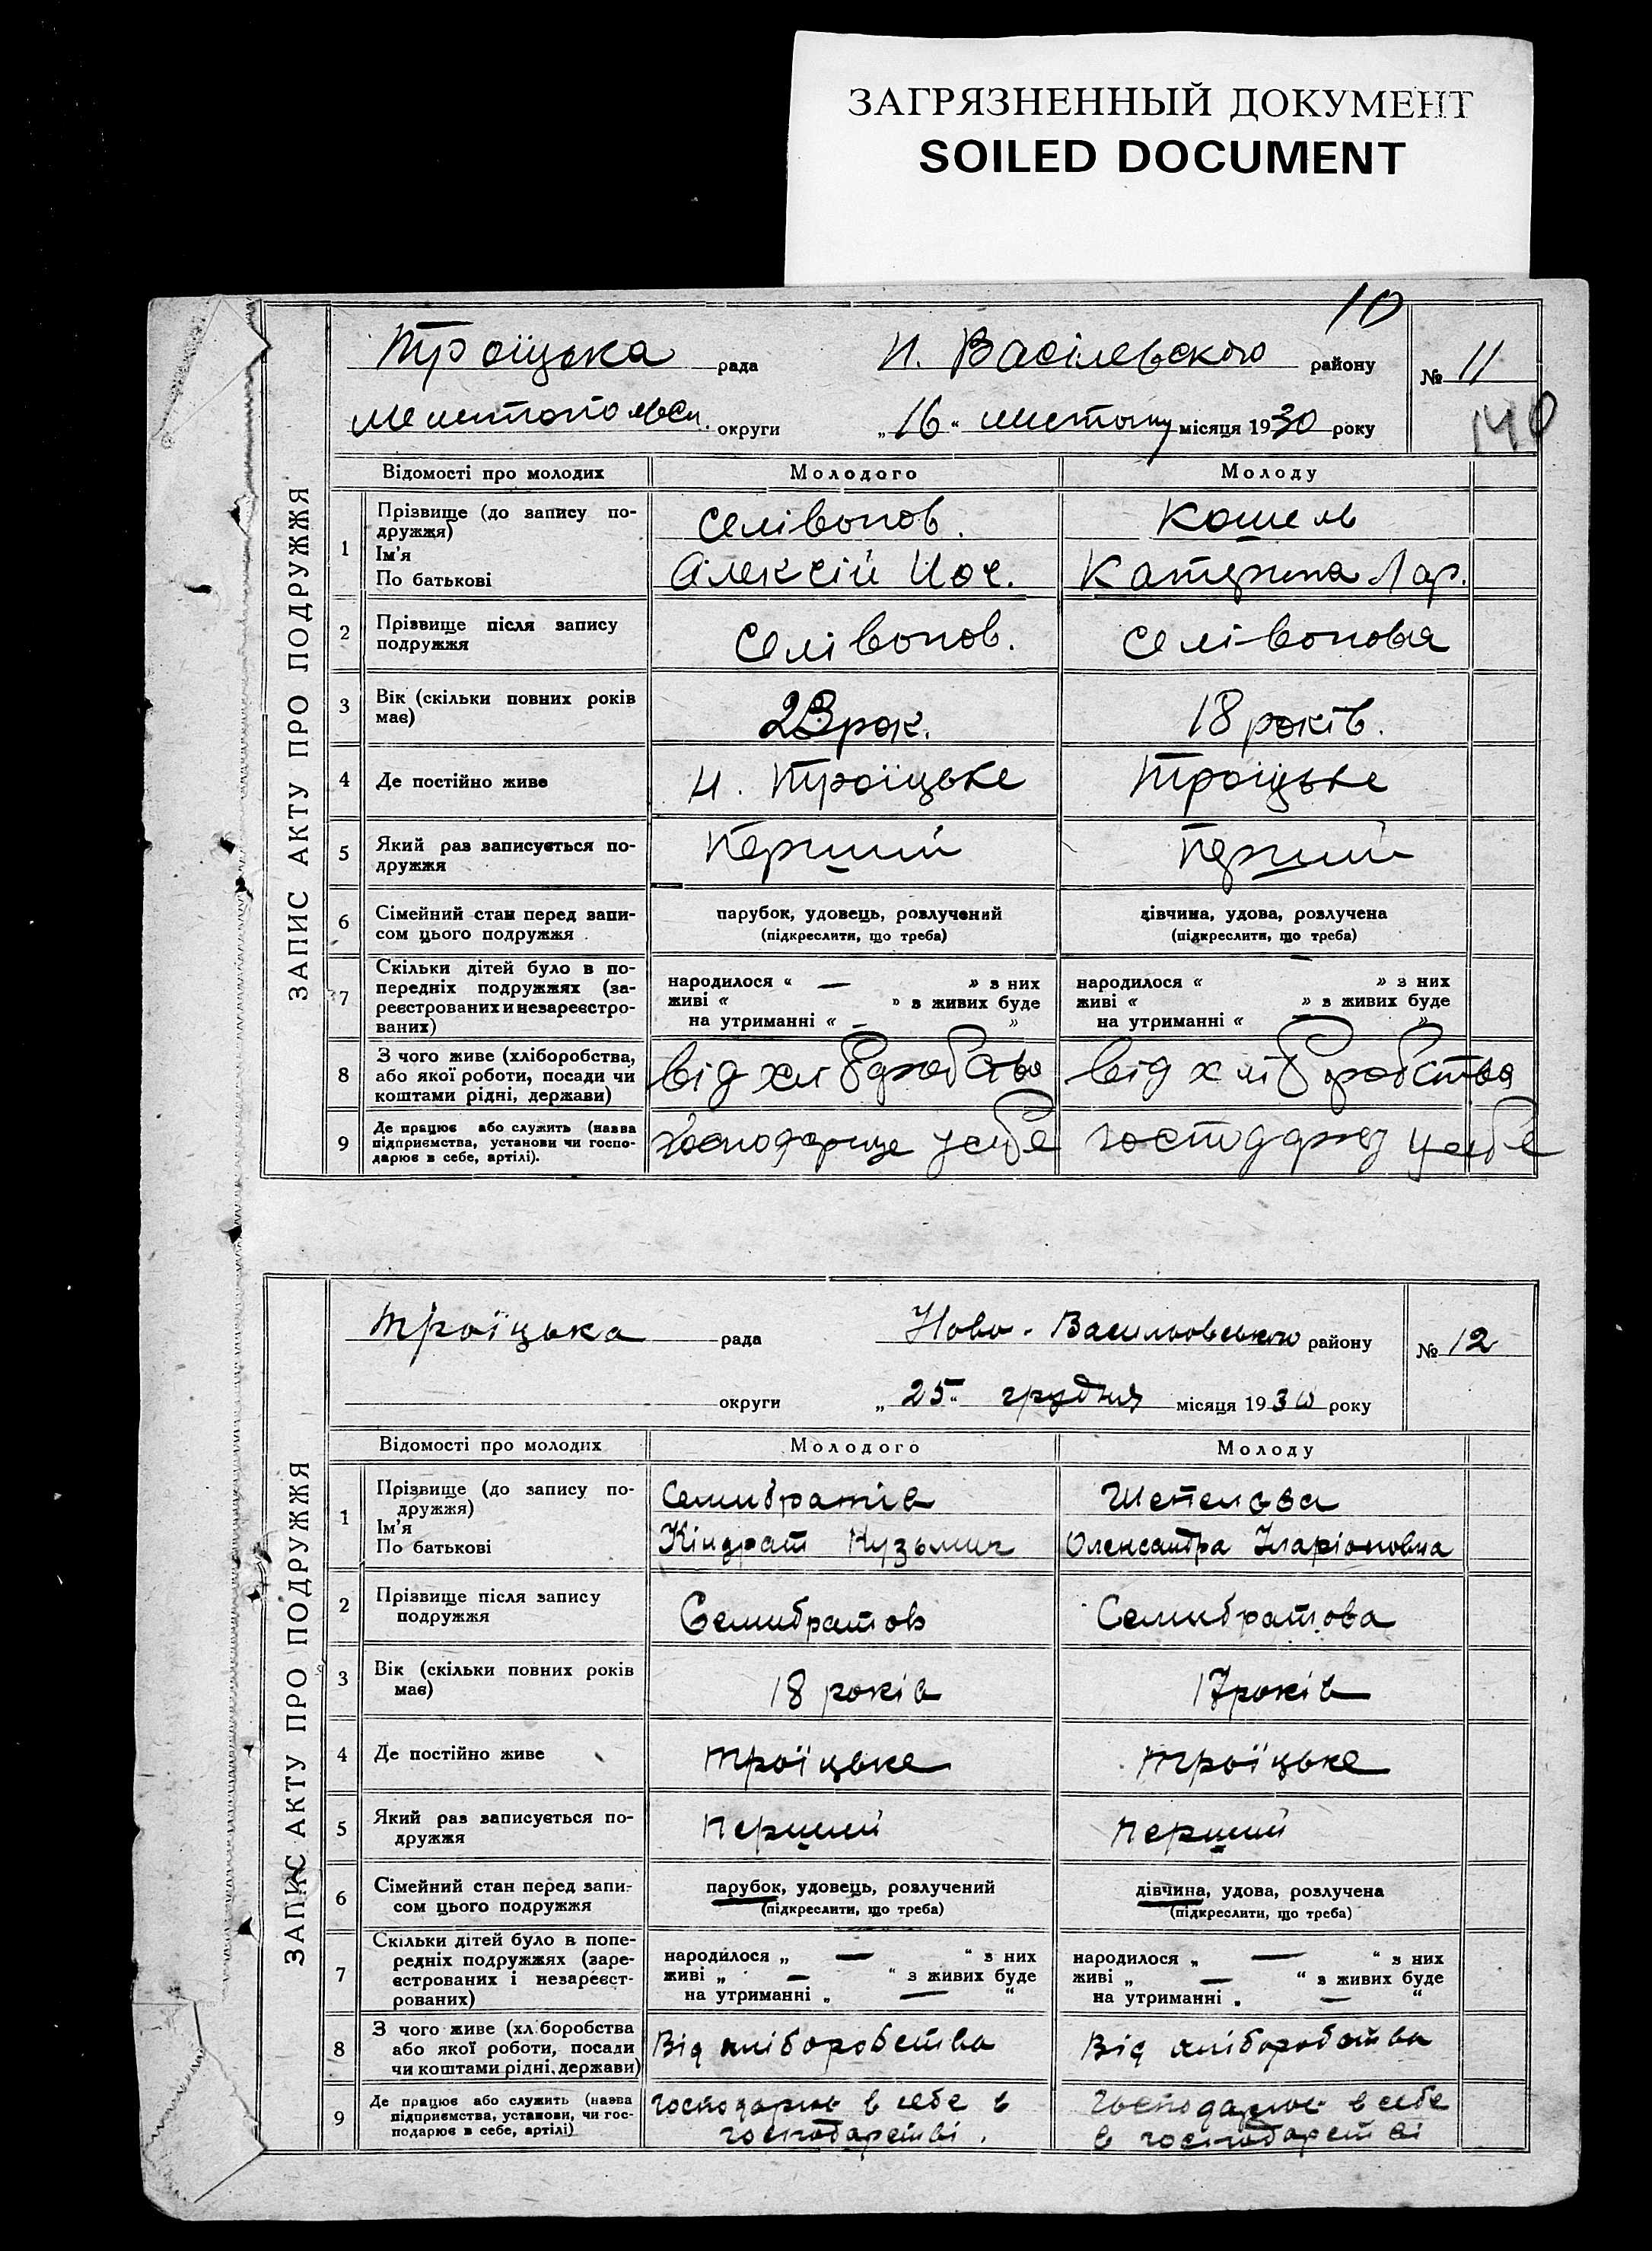 ЗАГРЯЗНЕННЫЙ ДОКУМЕНТ
SOILED DOCUMENT
10
Троїцька рада Н. Василевского району № 11
округи „16“ місяця 1930 року
140
ЗАПИС АКТУ ПРО ПОДРУЖЖЯ
Відомості про молодих Молодого Молоду
1 Прізвище (до запису по-
дружжя) Селівонов. Кошель
Ім'я
По батькові Алексій Катерина Лар.
2 Прізвище після запису
подружжя Селівонов. Селівонова
3 Вік (скільки повних років
має) 23 рок. 18 років.
4 Де постійно живе Н. Троїцьке Троїцьке
5 Який раз записується по-
дружжя Перший Перший
6 Сімейний стан перед запи-
сом цього подружжя парубок, удовець, розлучений дівчина, удова, розлучена
(підкреслити, що треба) (підкреслити, що треба)
7 Скільки дітей було в по-
передніх подружжях (за-
реєстрованих и незареєстро-
ваних)
народилося « — » з них народилося « — » з них
живі « » в живих буде живі « » в живих буде
на утриманні « – » на утриманні « — »
8 З чого живе (хліборобства,
або якої роботи, посади чи
коштами рідні, держави) від хліборобства від хліборобства
9 Де працює або служить (назва
підприємства, установи чи госпо-
дарює в себе, артілі). у себе у себе
ЗАПИС АКТУ ПРО ПОДРУЖЖЯ
Троїцька рада Ново-Васильовського району № 12
округи „25“ грудня місяця 1930 року
Відомості про молодих Молодого Молоду
1 Прізвище (до запису по-
дружжя) Семибратів Шепелєва
Ім'я
По батькові Кіндрат Кузьмич Олександра Іларіоновна
2 Прізвище після запису
подружжя Семибратов Семибратова
3 Вік (скільки повних років
має) 18 років 17 років
4 Де постійно живе Троїцьке Троїцьке
5 Який раз записується по-
дружжя Перший Перший
6 Сімейний стан перед запи-
сом цього подружжя парубок, удовець, розлучений дівчина, удова, розлучена
(підкреслити, що треба) (підкреслити, що треба)
7 Скільки дітей було в попе-
редніх подружжях (заре-
єстрованих і незареєст-
рованих)
народилося „ — “ з них народилося „ — “ з них
живі „ — “ з живих буде живі „ — “ з живих буде
на утриманні „ — “ на утриманні „ — “
8 З чого живе (хл боробства
або якої роботи, посади
чи коштами рідні, держави) Від хліборобства Від хліборобства
9 Де працює або служить (назва
підприємства, установи, чи гос-
подарює в себе, артілі) господарює в себе в господарює в себе
господарстві. в господарстві